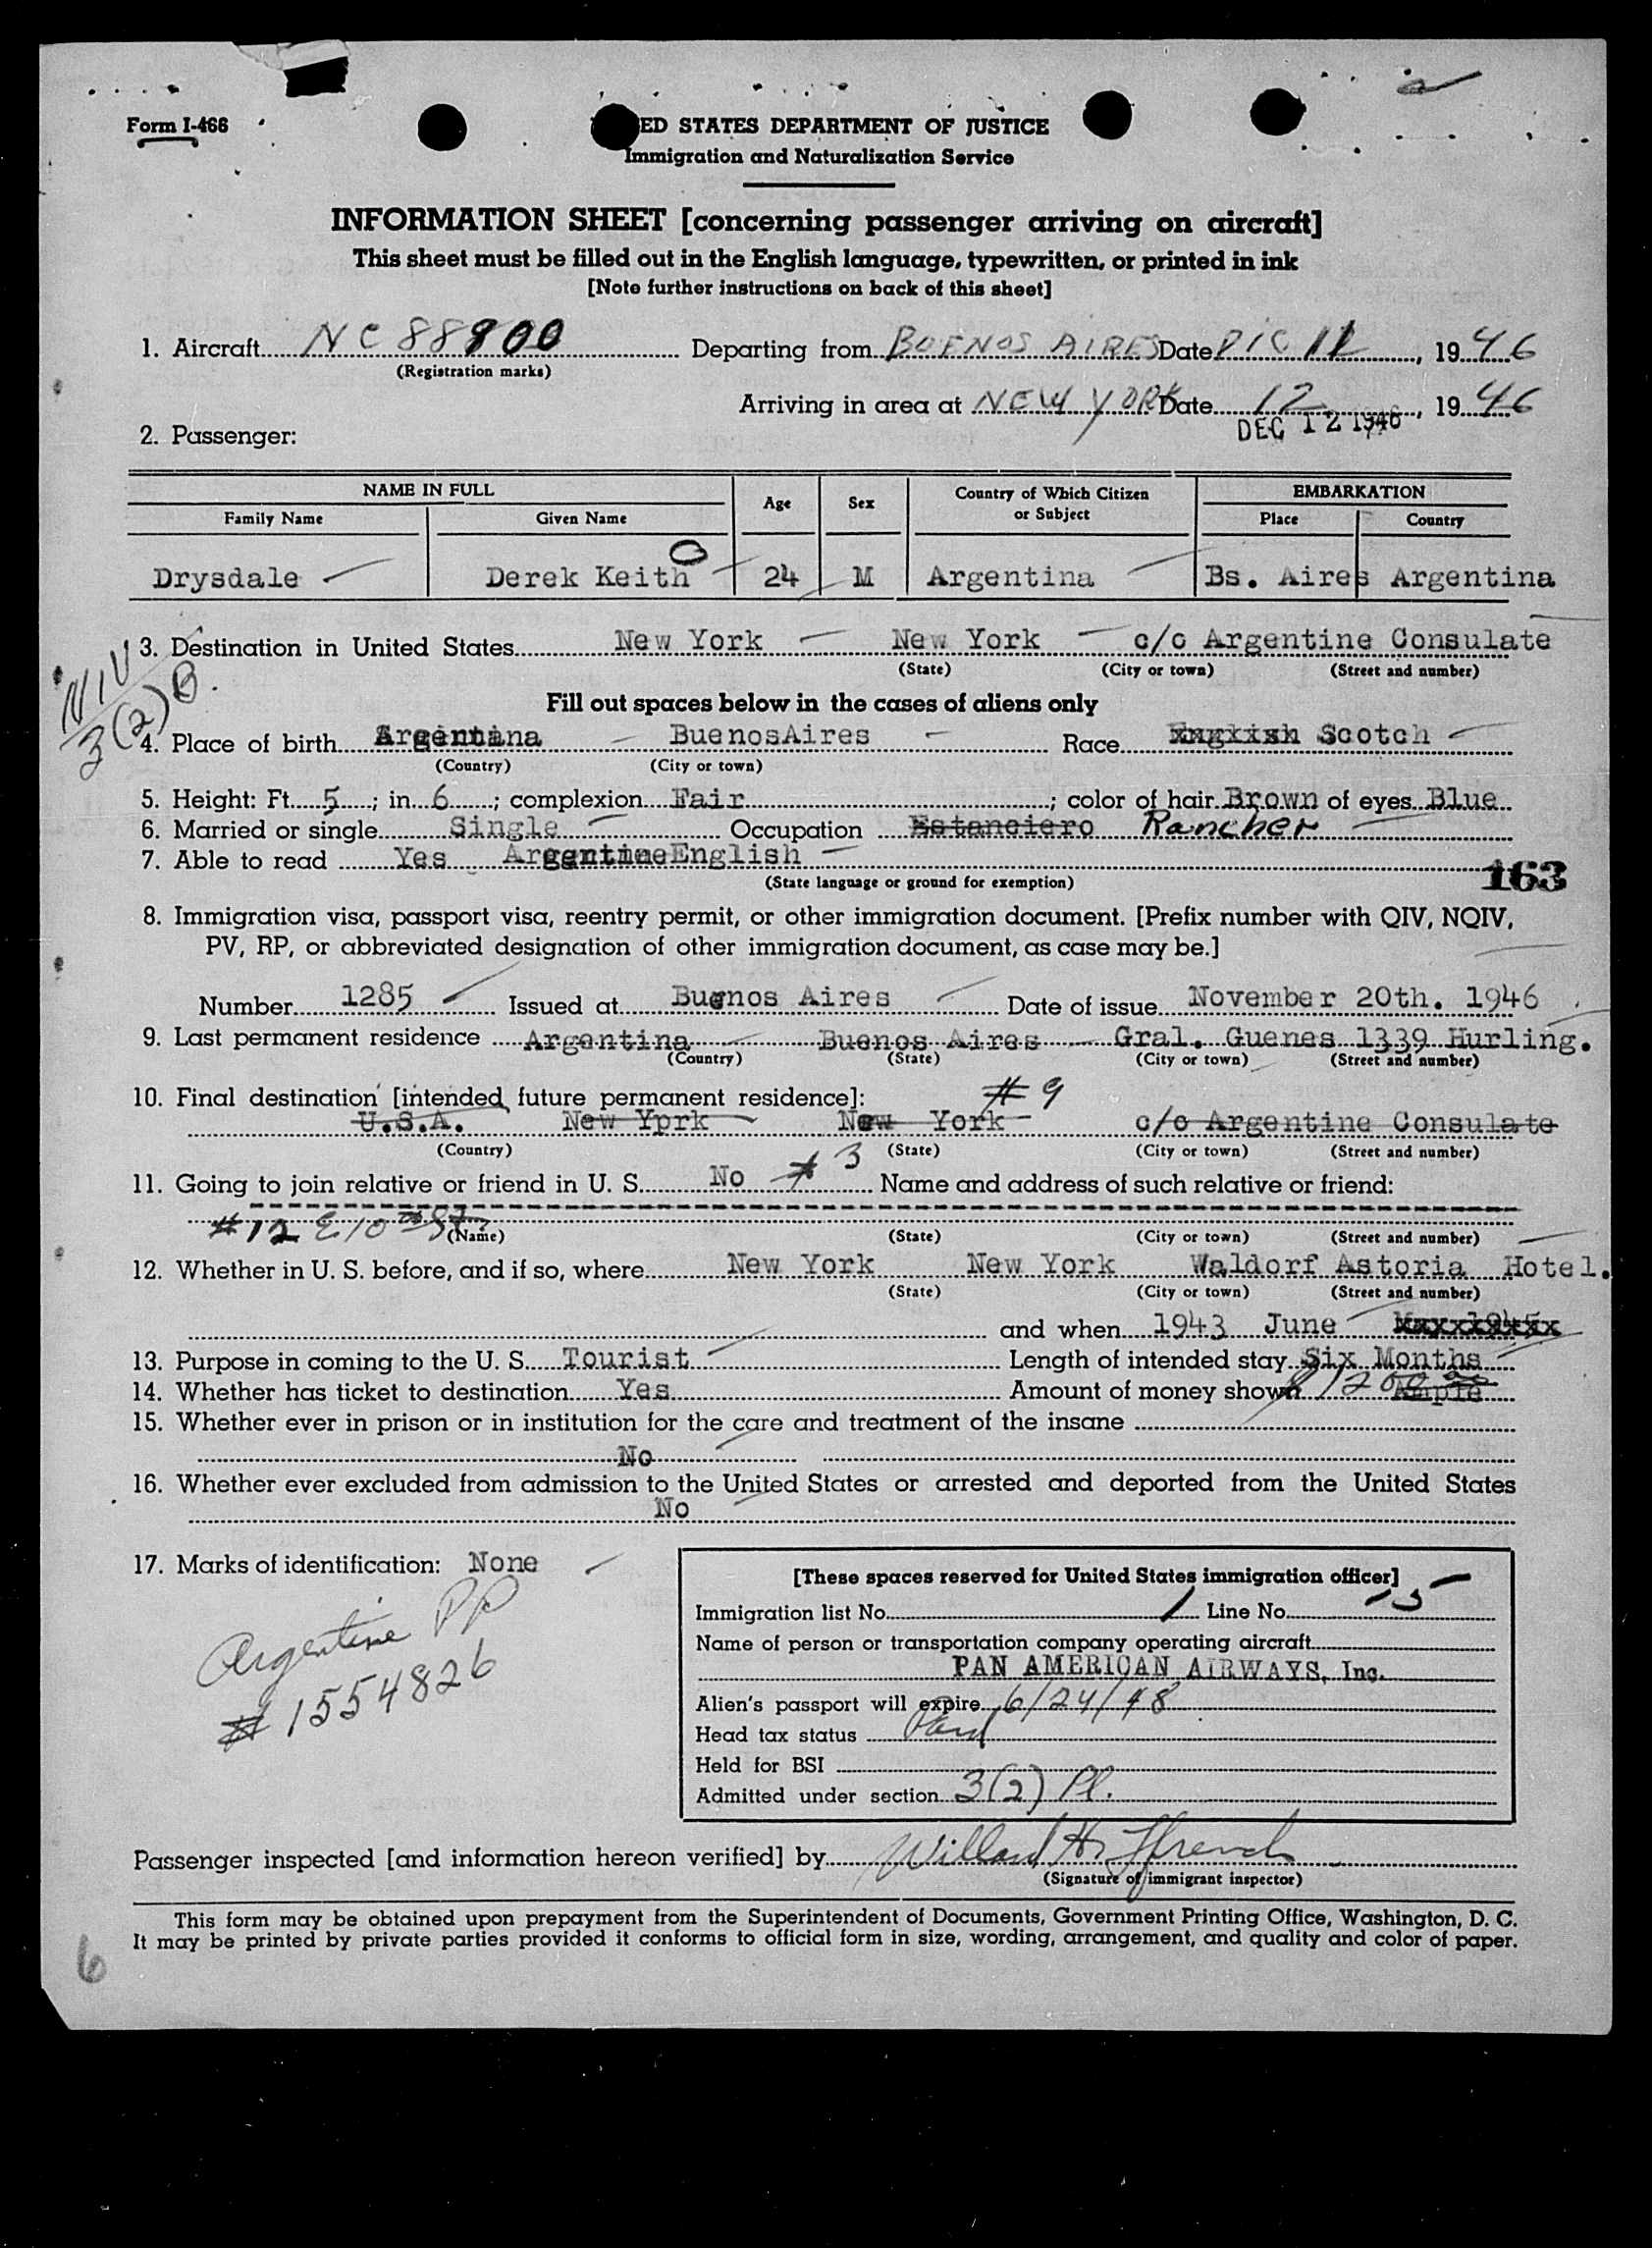 Form I-466
ED STATES DEPARTMENT OF JUSTICE
Immigration and Naturalization Service
INFORMATION SHEET [concerning passenger arriving on aircraft]
This sheet must be filled out in the English language, typewritten, or printed in ink
[Note further instructions on back of this sheet]
1. Aircraft NC 88900 Departing from BUENOS AIRES Date DIC 11, 1946
(Registration marks)
Arriving in area at NEW YORK Date 12, 1946
DEC 12 1946
2. Passenger:
NAME IN FULL Age Sex Country of Which Citizen or Subject EMBARKATION
Family Name Given Name Place Country
Drysdale Derek Keith 24 M Argentina Bs. Aires Argentina
3. Destination in United States New York New York c/o Argentine Consulate
(State) (City or town) (Street and number)
NIV
3(2)B.
Fill out spaces below in the cases of aliens only
4. Place of birth Argentina BuenosAires Race English Scotch
(Country) (City or town)
5. Height: Ft. 5; in. 6; complexion Fair; color of hair Brown of eyes Blue
6. Married or single Single Occupation Estanciero Rancher
7. Able to read Yes Argentine English
(State language or ground for exemption)
163
8. Immigration visa, passport visa, reentry permit, or other immigration document. [Prefix number with QIV, NQIV,
PV, RP, or abbreviated designation of other immigration document, as case may be.]
Number 1285 Issued at Buenos Aires Date of issue November 20th. 1946
9. Last permanent residence Argentina Buenos Aires Gral. Guenes 1339 Hurling.
(Country) (State) (City or town) (Street and number)
10. Final destination [intended future permanent residence]: #9
U.S.A. New Yprk New York c/o Argentine Consulate
(Country) (State) (City or town) (Street and number)
11. Going to join relative or friend in U. S. No # 3 Name and address of such relative or friend:
#12 E 10th St.
(Name) (State) (City or town) (Street and number)
12. Whether in U. S. before, and if so, where New York New York Waldorf Astoria Hotel.
(State) (City or town) (Street and number)
and when 1943 June
13. Purpose in coming to the U. S. Tourist Length of intended stay Six Months
14. Whether has ticket to destination Yes Amount of money shown $1200.00 Ample
15. Whether ever in prison or in institution for the care and treatment of the insane
No
16. Whether ever excluded from admission to the United States or arrested and deported from the United States
No
17. Marks of identification: None
Argentine PP
# 1554826
[These spaces reserved for United States immigration officer]
Immigration list No. 1 Line No. 5
Name of person or transportation company operating aircraft
PAN AMERICAN AIRWAYS, Inc.
Alien's passport will expire 6/24/48
Head tax status Paid
Held for BSI
Admitted under section 3(2) Pl.
Passenger inspected [and information hereon verified] by Willard H. Ffrench
(Signature of immigrant inspector)
This form may be obtained upon prepayment from the Superintendent of Documents, Government Printing Office, Washington, D. C.
It may be printed by private parties provided it conforms to official form in size, wording, arrangement, and quality and color of paper.
6